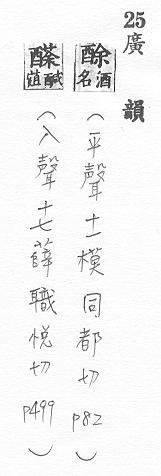 25 廣韻
酴 酒名 （平聲十一模 同都切 P82）
醎菹 （入聲十七薛 職悅切 P499）